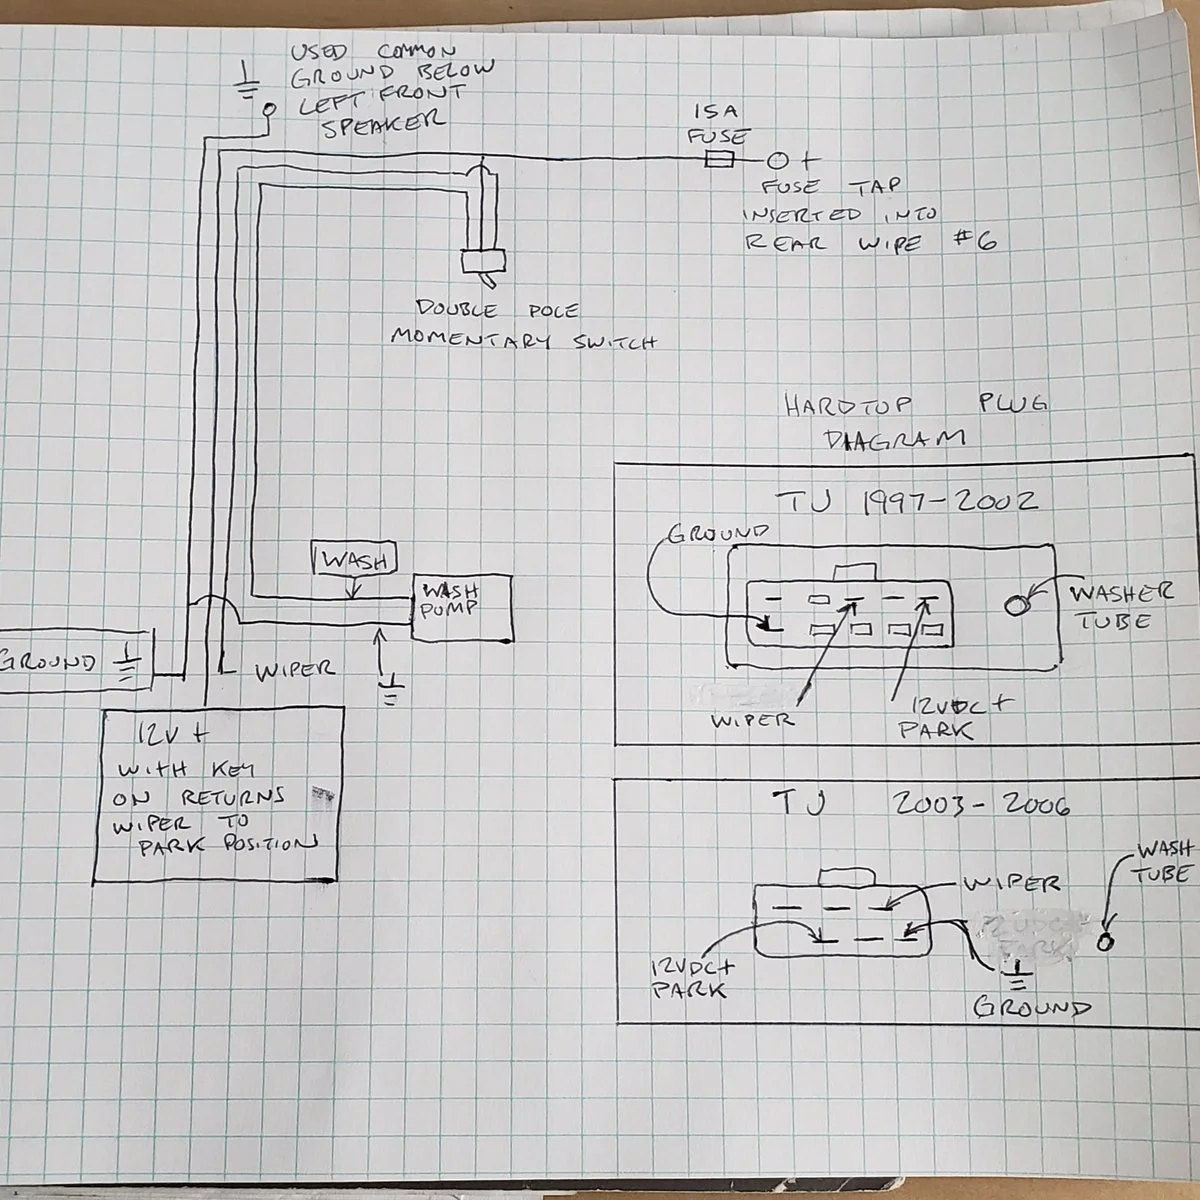 USED COMMON
GROUND BELOW
LEFT FRONT
SPEAKER
15A
FUSE
+
FUSE TAP
INSERTED INTO
REAR WIPE #6
DOUBLE POLE
MOMENTARY SWITCH
WASH
WASH
PUMP
GROUND
WIPER
12V +
WITH KEY
ON RETURNS
WIPER TO
PARK POSITION
HARDTOP PLUG
DIAGRAM
TJ 1997-2002
GROUND
WASHER
TUBE
WIPER
12VDC+
PARK
TJ 2003-2006
WASH
TUBE
WIPER
12VDC+
PARK
GROUND